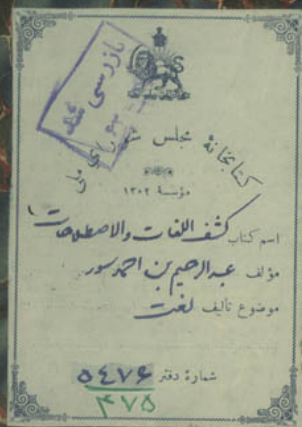 بازرسی شد
کتابخانهٔ مجلس شورای ملی
مؤسسهٔ ۱۳۰۲
اسم کتاب کشف اللغات والاصطلاحات
مؤلف عبدالرحیم بن احمد سور
موضوع تألیف لغت
شمارهٔ دفتر ۵٤۷۶
۳۷۵